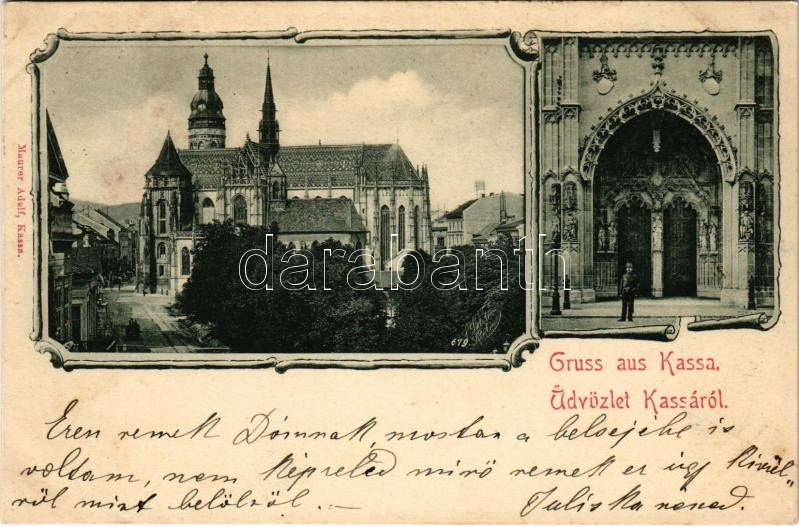 Maurer Adolf, Kassa.
darabanth.com
679
Gruss aus Kassa.
Üdvözlet Kassáról.
Ezen remek Dómnak, mostan a belsejébe is
voltam, nem képzeled miró remek ez úgy kivül„
ról mint belölról. . —
Juliska nénéd.